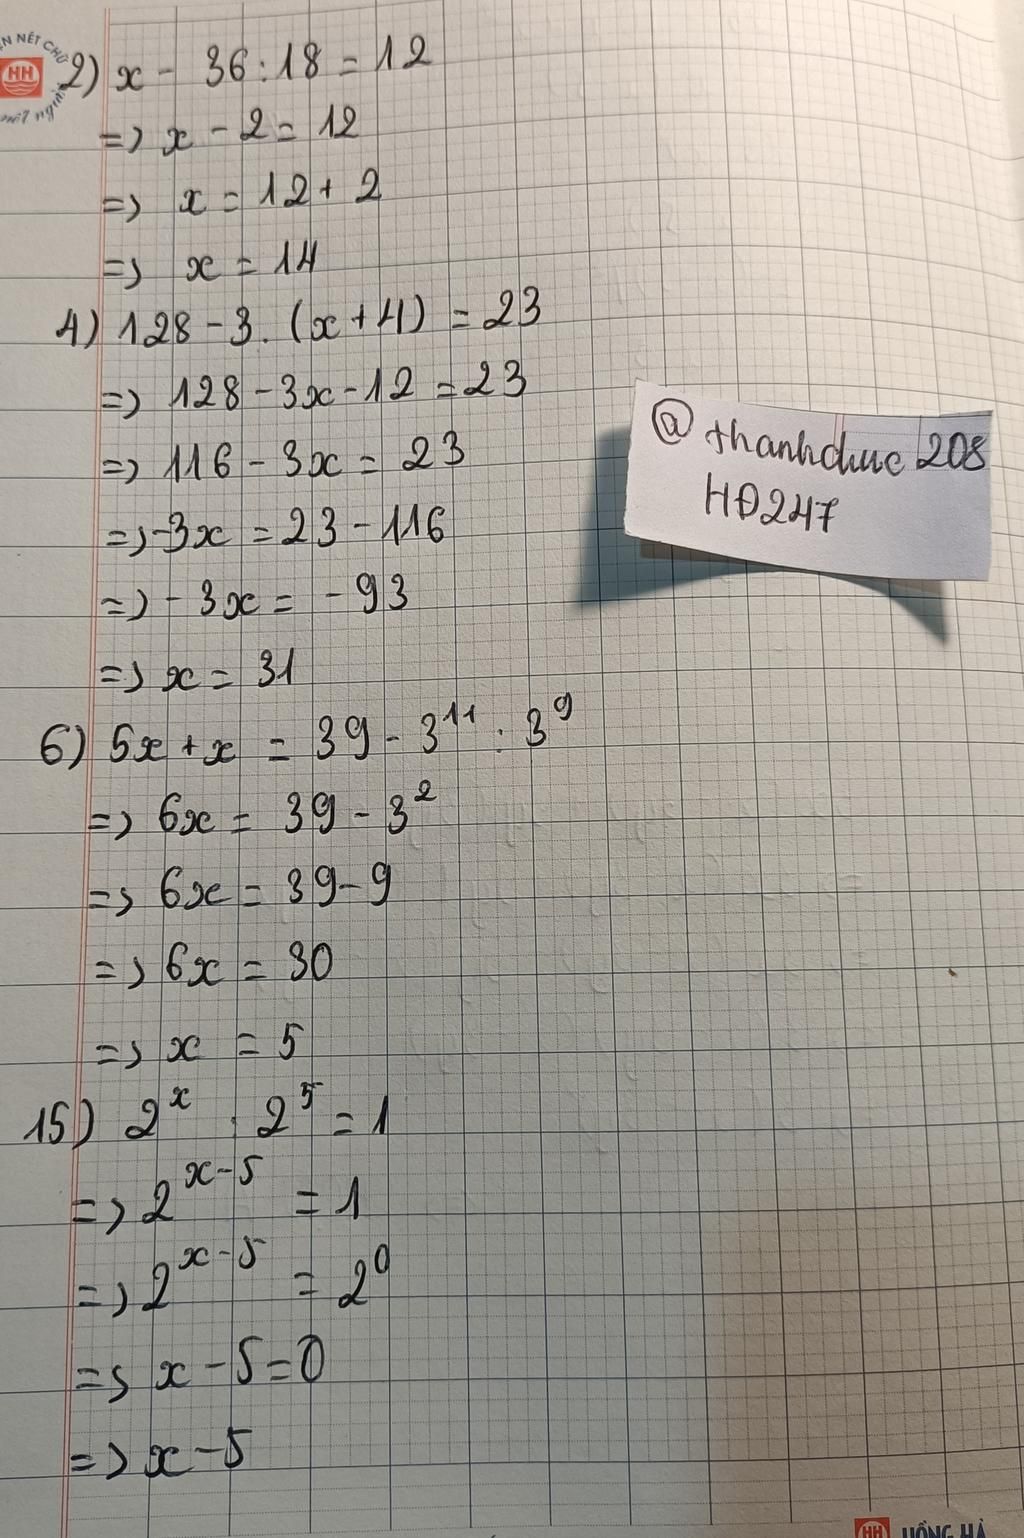 2) x - 36 : 18 = 12
=> x - 2 = 12
=> x = 12 + 2
=> x = 14
4) 128 - 3. (x + 4) = 23
=> 128 - 3x - 12 = 23
=> 116 - 3x = 23
=> -3x = 23 - 116
=> - 3x = - 93
=> x = 31
@thanhduc208
HĐ247
6) 5x + x = 39 - 3¹¹ : 3⁹
=> 6x = 39 - 3²
=> 6x = 39 - 9
=> 6x = 30
=> x = 5
15) 2^x : 2^5 = 1
=> 2^(x-5) = 1
=> 2^(x-5) = 2^0
=> x - 5 = 0
=> x - 5
HH
HH HỒNG HÀ